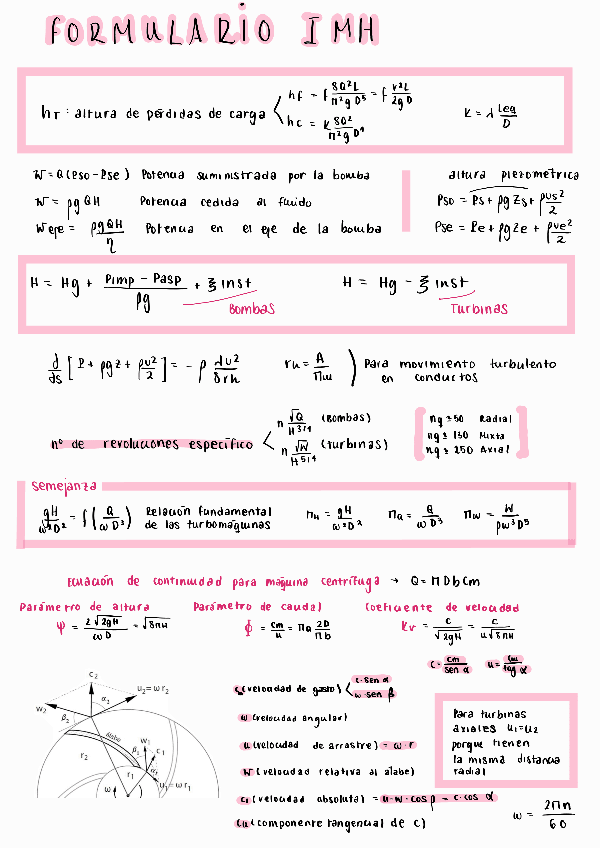 FORMULARIO IMH
hT : altura de pérdidas de carga
hf = f 8Q²L / π²g D⁵ = f v²L / 2g D
hc = K 8Q² / π²g D⁴
K = λ Leq / D
Ẇ = Q(Pso - Pse) Potencia suministrada por la bomba
Ẇ = ρg QH Potencia cedida al fluido
Ẇeje = ρgQH / η Potencia en el eje de la bomba
altura piezométrica
Pso = Ps + ρg Zs + ρvs² / 2
Pse = Pe + ρgZe + ρve² / 2
H = Hg + Pimp - Pasp / ρg + ξ inst
Bombas
H = Hg - ξ inst
Turbinas
d/ds [P + ρgz + ρv²/2] = - ρ λv² / 8rh
rh = A / Πm
Para movimiento turbulento
en conductos
nº de revoluciones específico
n √Q / H^3/4 (Bombas)
n √Ẇ / H^5/4 (turbinas)
nq ≥ 50 Radial
nq ≥ 130 Mixta
nq ≥ 250 Axial
semejanza
gH / ω²D² = f(Q / ωD³)
Relación fundamental
de las turbomáquinas
ΠH = gH / ω²D²
ΠQ = Q / ωD³
ΠW = Ẇ / ρω³D⁵
Ecuación de continuidad para máquina centrífuga → Q = Π D b Cm
Parámetro de altura
Ψ = 2√2gH / ωD = √8ΠH
Parámetro de caudal
Φ = cm / u = ΠQ 2D / Πb
Coeficiente de velocidad
Kv = c / √2gH = c / u√8ΠH
C = cm / sen α
u = cu / tag α
c (velocidad de gasto)
c · sen α
w · sen β
ω (velocidad angular)
u (velocidad de arrastre) = ω · r
W (velocidad relativa al álabe)
c (velocidad absoluta) = u - w · cos β = c · cos α
Cu (componente tangencial de c)
Para turbinas
axiales u₁=u₂
porque tienen
la misma distancia
radial
ω = 2Πn / 60
c₂
w₂
α₂
u₂ = ω r₂
β₂
álabe
w₁
β₁
c₁
r₂
r₁
α₁
u₁ = ω r₁
ω